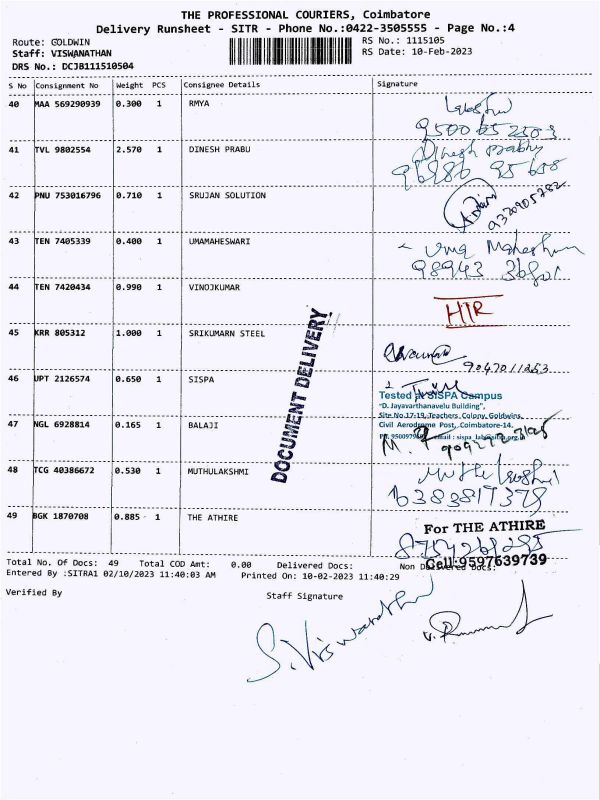 THE PROFESSIONAL COURIERS, Coimbatore
Delivery Runsheet - SITR - Phone No.:0422-3505555 - Page No.:4
Route: GOLDWIN
RS No.: 1115105
Staff: VISWANATHAN
RS Date: 10-Feb-2023
DRS No.: DCJB111510504
S No Consignment No Weight PCS Consignee Details Signature
40 MAA 569290939 0.300 1 RMYA
41 TVL 9802554 2.570 1 DINESH PRABU
Dinesh prabhu
42 PNU 753016796 0.710 1 SRUJAN SOLUTION
43 TEN 7405339 0.400 1 UMAMAHESWARI
Uma
44 TEN 7420434 0.990 1 VINOJKUMAR
HTR
45 KRR 805312 1.000 1 SRIKUMARN STEEL
46 UPT 2126574 0.650 1 SISPA
Tested at SISPA Campus
"D. Jayavarthanavelu Building",
Site No.17-19, Teachers Colony, Goldwins,
Civil Aerodrome Post, Coimbatore-14.
47 NGL 6928814 0.165 1 BALAJI
48 TCG 40386672 0.530 1 MUTHULAKSHMI
6383817378
49 BGK 1870708 0.885 1 THE ATHIRE
For THE ATHIRE
Cell:9597639739
DOCUMENT DELIVERY
Total No. Of Docs: 49 Total COD Amt: 0.00 Delivered Docs: Non Delivered Docs:
Entered By :SITRA1 02/10/2023 11:40:03 AM Printed On: 10-02-2023 11:40:29
Verified By
Staff Signature
S. Viswanathan